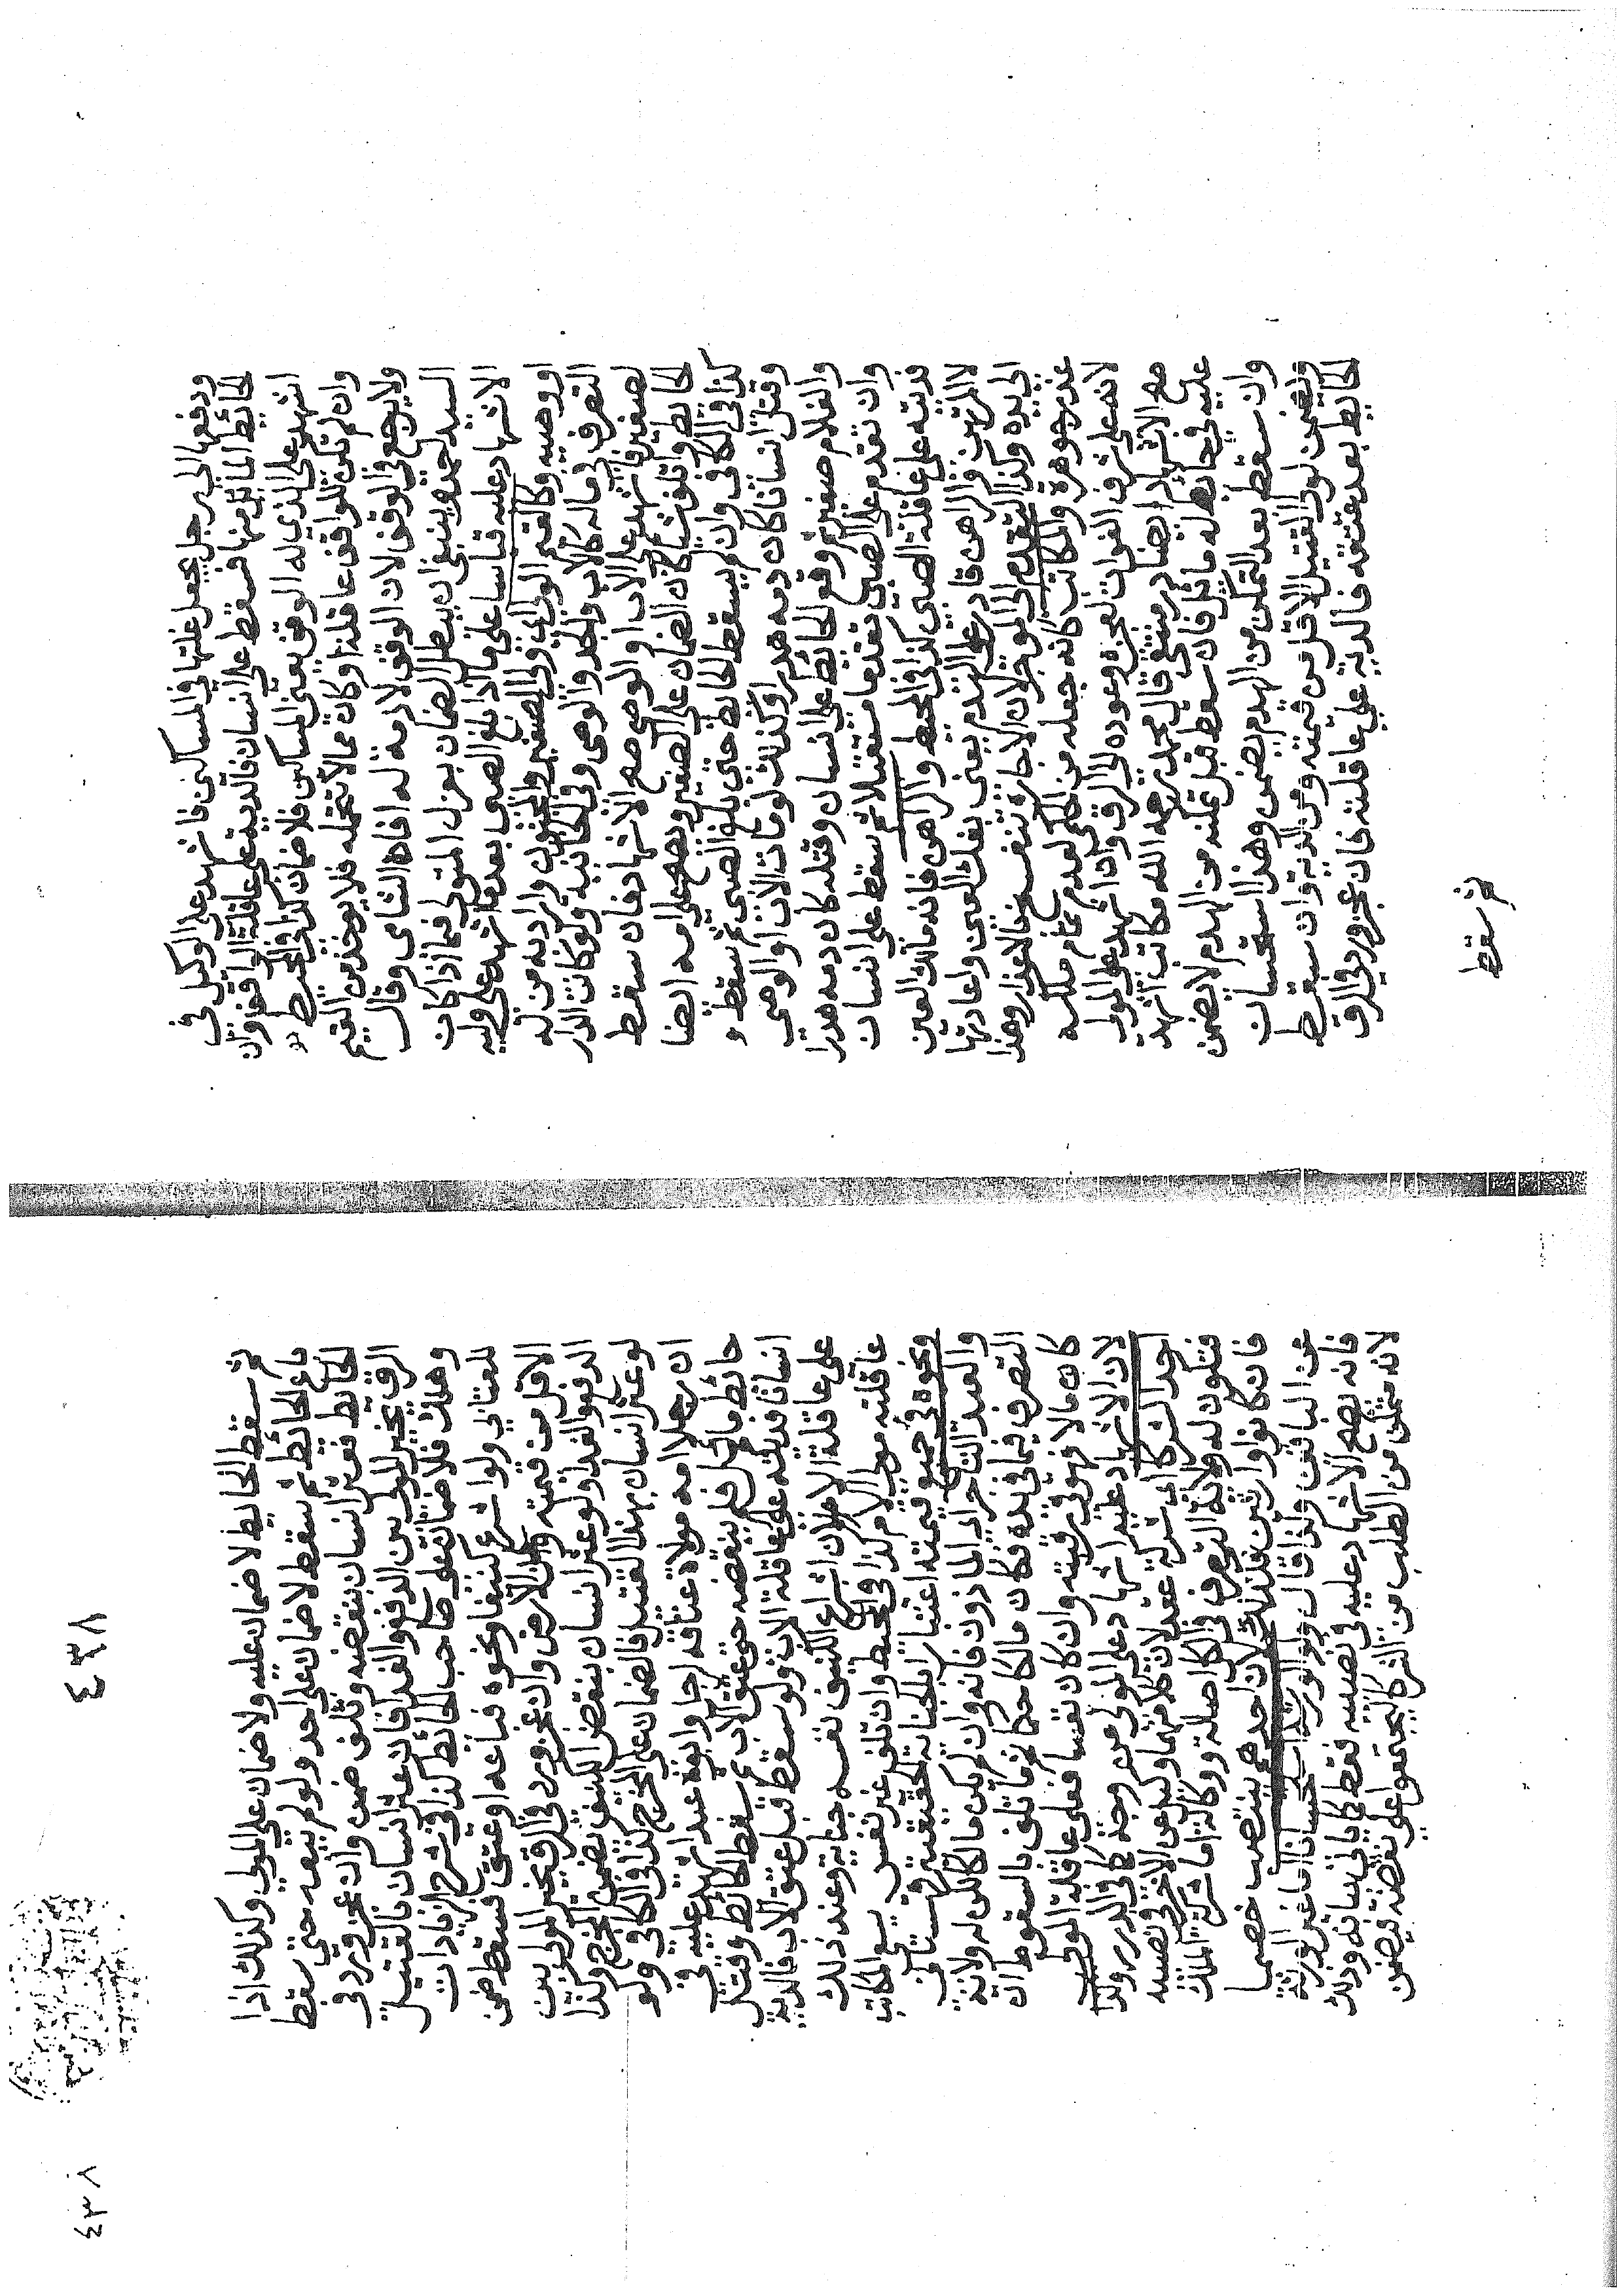 ودفعها الى رجل يجعل غلتها في المساكين فاشهد على الوكيل في
الحائط المائل منها فسقط على انسان فالدية على عاقلة الواقف وان
اشهد على الذي له الوقف يعني المساكين فلا ضمان كذا في المحيط
وان لم تكن للواقف عاقلة او كان مما لا تتحمله فلا يوخذ من القيم
ولا يرجع في الوقف لان الوقف لا ذمة له افاده الشامي وقال
السيد احمد ينبغي ان يبطل الضمان بعزل المتولي فيما اذا كان
الاشهاد عليه قياسا على ما اذا بلغ الصبي بعد ما اشهد على وليه
او وصيه وكالقيم الولي اي ولي الصغير والمجنون واراد به من له
التصرف في ماله كالاب والجد والوصي وفي الخانية ولو كانت الدار
لصغير فاشهد على الاب او الوصي صح الاشهاد فان سقط
الحايط واتلف شيا كان الضمان على الصغير ويصح على امه ايضا
كذا في الكافي وان لم يسقط الحايط حتى بلغ الصبي ثم سقط و
وقتل انسانا كان دمه هدرا وكذلك لو مات الاب او الوصي
والغلام صغير ثم وقع الحائط على انسان وقتله كان دمه هدرا
وان تقدم على الصبي تقدما مستقبلا ثم سقط على انسان
فديته على عاقلة الصبي كذا في المحيط والراهن فانه مالك العين
لا المرتهن والراهن قادر على الهدم يعني بفك العين واعادتها
الى يده وكذا التقدم الى الموجر لان الاجارة تنفسخ بالاعذار وهذا
عذر جوهرة والمكاتب كانه جعله من الحكمي لعدم تمام ملكه
لانه على شرف الفوات لعجزه وعوده الى الرق واذا اشهد على المولى
صح الاشهاد ايضا در منتقى قال محمد رحمه الله مكاتب اشهد
عليه في حائط له مائل فان سقط قبل تمكنه من الهدم لا يضمن
وان سقط بعد التمكن من الهدم يضمن وهذا استحسان
ويضمن لولي القتيل الاقل من قيمته ومن الدية وان سقط
الحايط بعد عتقه فالدية على عاقلته فان عجز ورد في الرق
ثم سقط
٤٣٨
٤٣٨
ثم سقط الحايط لا ضمان عليه ولا ضمان على المولى وكذلك اذا
باع الحائط ثم سقط لا ضمان على احد ولو لم يبعه حتى سقط
الحايط فعثر انسان بنقضه وتلف ضمن وان عجز ورد في
الرق يخير المولى بين الدفع والفدا فان عثر انسان بالقتيل
وهلك فلا ضمان على صاحب الحائط كذا في شرح الزيادات
للعتابي ولو اشرع كنيفا ونحوه فباعه او عتق فسقط ضمن
الاقل من قيمته ومن الارش وان عجز ورد في الرق يخير المولى بين
الدفع والفدا ولو عثر انسان بنقض الكنيف يضمن المخرج وكذا
لو عثر انسان بهذا القتيل فالضمان على المخرج كذا في الكافي ولو
ان رجلا امه مولاة عتاقة رجل وابوه عبد اشهد عليه في
حائط مائل فلم ينقضه حتى عتق الاب ثم سقط الحائط وقتل
انسانا فديته على عاقلة الاب ولو سقط قبل عتق الاب فالدية
على عاقلة الام لان اشراع الكنيف نفسه جناية وعند ذلك
عاقلته موالي الام كذا في المحيط وان تلف غير نفس يسعى المكاتب
ونحوه في جميع قيمته اعتبارا بالجناية الحقيقية قهستاني
والعبد التاجر اي الماذون فانه وان لم يكن مالكا لكن له ولاية
التصرف فيما في يده فكان مالكا حكما ثم ما تلف بالسقوط ان
كان مالا فهو في رقبته وان كان نفسا فعلى عاقلة المولى
لان الاشهاد عليه اشهاد على المولى من وجه كما في الدرر وكذا
احد الشركا اي شركة عقد لان كلا منهما وكيل عن الاخر في نصيبه
فتكون له ولاية التصرف في الكل اصالة ووكالة اما شركة الملك
فان كانوا وارثين فكذلك لان احدهم ينتصب خصما
عن الباقين ولذا قال ولو الورثة استحسانا اما غير الورثة
فانه يصح الاشهاد عليه في نصيبه فقط كما ياتي بيانه وذلك
لانه متمكن من الطلب من الشركا ليجتمعوا على نقضه فيضمن